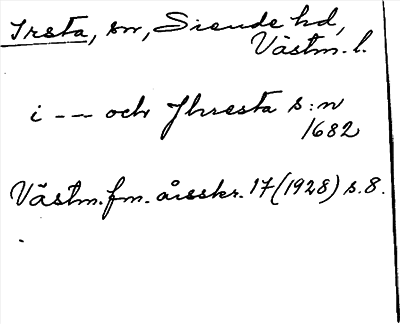 Irsta, sn, Siende hd,
Västm. l.
i -- och Jhresta s:n
1682
Västm. fm. årsskr. 17 (1928) s. 8.